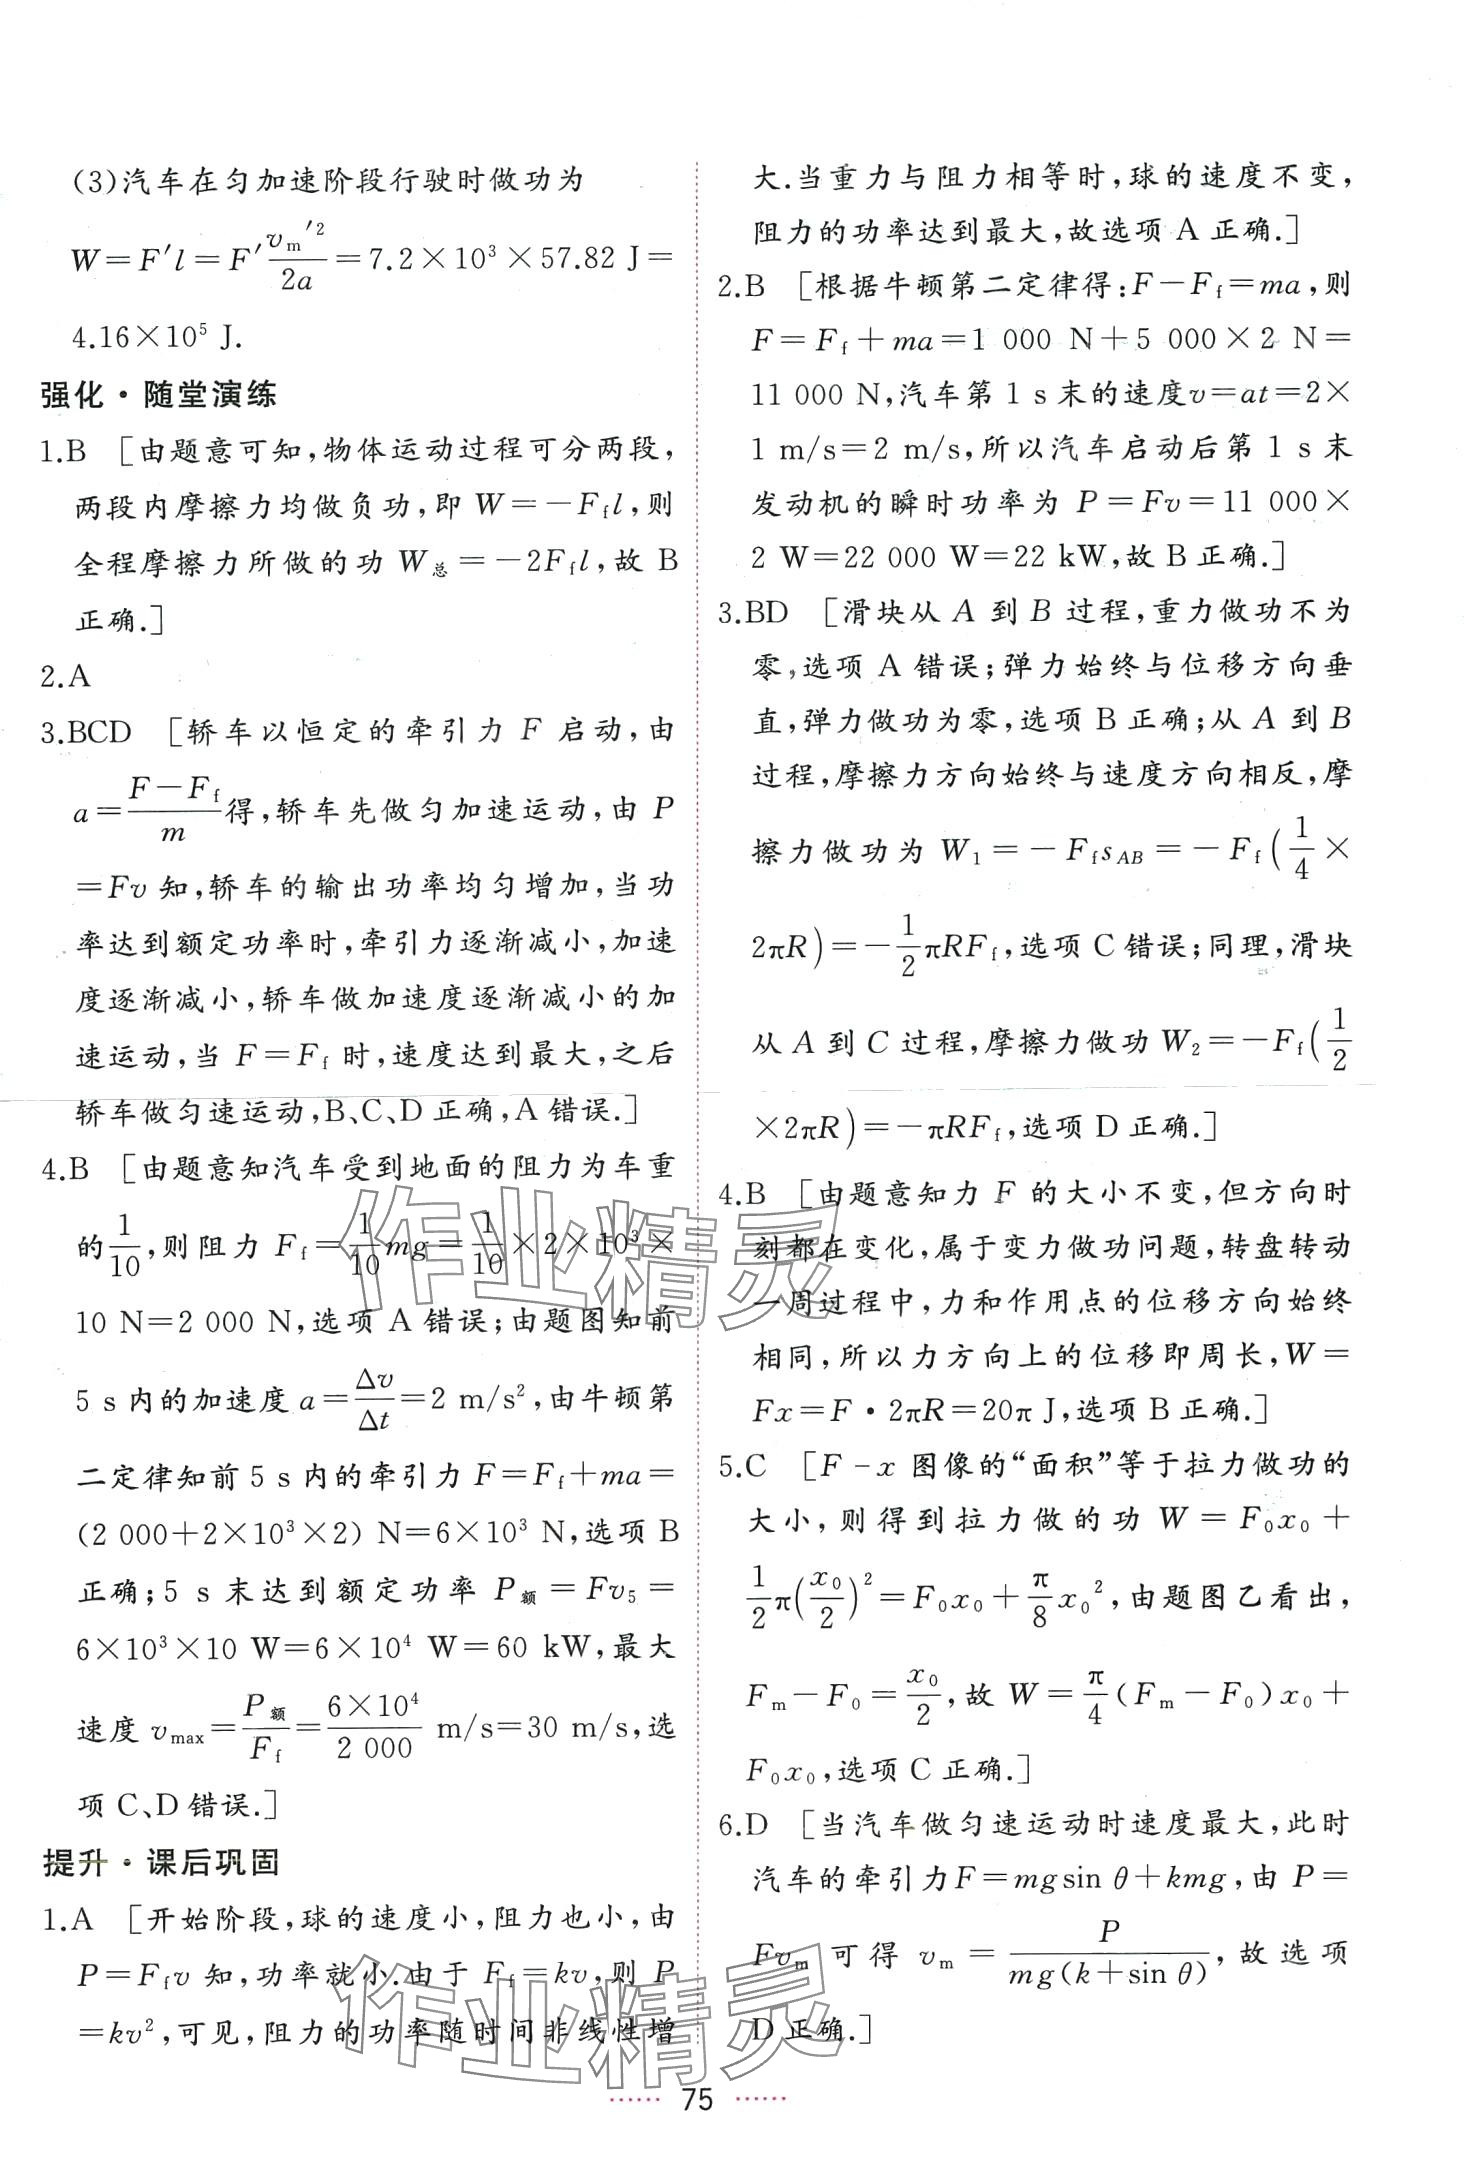 (3)汽车在匀加速阶段行驶时做功为
W=F′l=F′vₘ′²/2a=7.2×10³×57.82 J=
4.16×10⁵ J.
强化·随堂演练
1.B [由题意可知,物体运动过程可分两段,
两段内摩擦力均做负功,即 W=-F_f l,则
全程摩擦力所做的功 W总=-2F_f l,故 B
正确.]
2.A
3.BCD [轿车以恒定的牵引力 F 启动,由
a=(F-F_f)/m得,轿车先做匀加速运动,由 P
=Fv 知,轿车的输出功率均匀增加,当功
率达到额定功率时,牵引力逐渐减小,加速
度逐渐减小,轿车做加速度逐渐减小的加
速运动,当 F=F_f 时,速度达到最大,之后
轿车做匀速运动,B、C、D 正确,A 错误.]
4.B [由题意知汽车受到地面的阻力为车重
的1/10,则阻力 F_f=1/10mg=1/10×2×10³×
10 N=2 000 N,选项 A 错误;由题图知前
5 s 内的加速度 a=Δv/Δt=2 m/s²,由牛顿第
二定律知前 5 s 内的牵引力 F=F_f+ma=
(2 000+2×10³×2) N=6×10³ N,选项 B
正确;5 s 末达到额定功率 P额=Fv₅=
6×10³×10 W=6×10⁴ W=60 kW,最大
速度 v_max=P额/F_f=6×10⁴/2 000 m/s=30 m/s,选
项 C、D 错误.]
提升·课后巩固
1.A [开始阶段,球的速度小,阻力也小,由
P=F_f v 知,功率就小.由于 F_f=kv,则 P
=kv²,可见,阻力的功率随时间非线性增
大.当重力与阻力相等时,球的速度不变,
阻力的功率达到最大,故选项 A 正确.]
2.B [根据牛顿第二定律得:F-F_f=ma,则
F=F_f+ma=1 000 N+5 000×2 N=
11 000 N,汽车第 1 s 末的速度v=at=2×
1 m/s=2 m/s,所以汽车启动后第 1 s 末
发动机的瞬时功率为 P=Fv=11 000×
2 W=22 000 W=22 kW,故 B 正确.]
3.BD [滑块从 A 到 B 过程,重力做功不为
零,选项 A 错误;弹力始终与位移方向垂
直,弹力做功为零,选项 B 正确;从 A 到 B
过程,摩擦力方向始终与速度方向相反,摩
擦力做功为 W₁=-F_f s_AB=-F_f(1/4×
2πR)=-1/2πRF_f,选项 C 错误;同理,滑块
从 A 到 C 过程,摩擦力做功 W₂=-F_f(1/2
×2πR)=-πRF_f,选项 D 正确.]
4.B [由题意知力 F 的大小不变,但方向时
刻都在变化,属于变力做功问题,转盘转动
一周过程中,力和作用点的位移方向始终
相同,所以力方向上的位移即周长,W=
Fx=F·2πR=20π J,选项 B 正确.]
5.C [F-x 图像的“面积”等于拉力做功的
大小,则得到拉力做的功 W=F₀x₀+
1/2π(x₀/2)²=F₀x₀+π/8x₀²,由题图乙看出,
Fₘ-F₀=x₀/2,故 W=π/4(Fₘ-F₀)x₀+
F₀x₀,选项 C 正确.]
6.D [当汽车做匀速运动时速度最大,此时
汽车的牵引力F=mgsin θ+kmg,由 P=
Fvₘ 可得 vₘ=P/mg(k+sin θ),故选项
D 正确.]
作业精灵
作业精灵
······ 75 ······